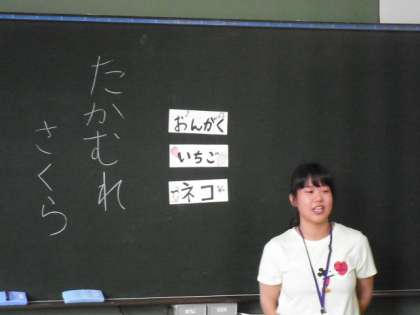 たかむれ
さくら
おんがく
いちご
ネコ